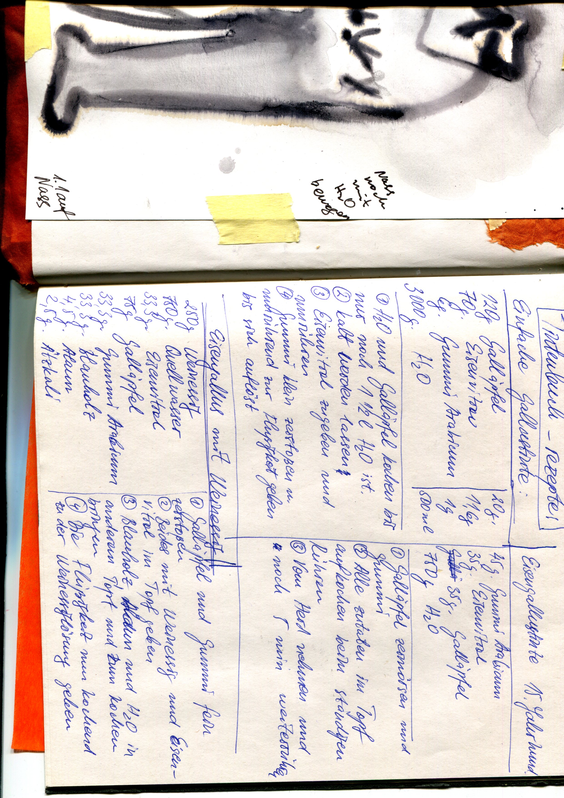 1.1 auf
Nass
Nass
noch
mit
H₂O
bewegt
Tintenbuch - rezepte:
Einfache Gallustinte:
120g Galläpfel 20g
70g Eisenvitriol 11,6g
6g Gummi Arabicum 1g
3000g H₂O 500ml
① H₂O und Galläpfel kochen bis
nur noch 1½ l H₂O ist.
② kalt werden lassen
③ Eisenvitriol zugeben und
umrühren
④ Gummi klein zerstossen u.
umrührend zur Flüssigkeit geben
bis sich auflöst
Eisengallustinte 15. Jahrhund.
45g Gummi Arabicum
35g Eisenvitriol
35g Galläpfel
750g H₂O
① Galläpfel zermörsern und
Gummi
② Alle zutaten im Topf
aufkochen beim ständigen
Rühren
③ Vom Herd nehmen und
noch 5 min weiter
Eisengallus mit Weinessig
250g Weinessig
750g Quellwasser
33,3g Eisenvitriol
75g Galläpfel
33,3g Gummi Arabicum
33,3g Blauholz
4,5g Alaun
2,5g
① Galläpfel und Gummi fein
gestossen
② Beides mit Weinessig und Eisen-
vitriol im Topf geben
③ Blauholz Alaun und H₂O in
anderem Topf und zum kochen
bringen
④ Die Flüssigkeit nun kochend
zu der Weinessiglösung geben